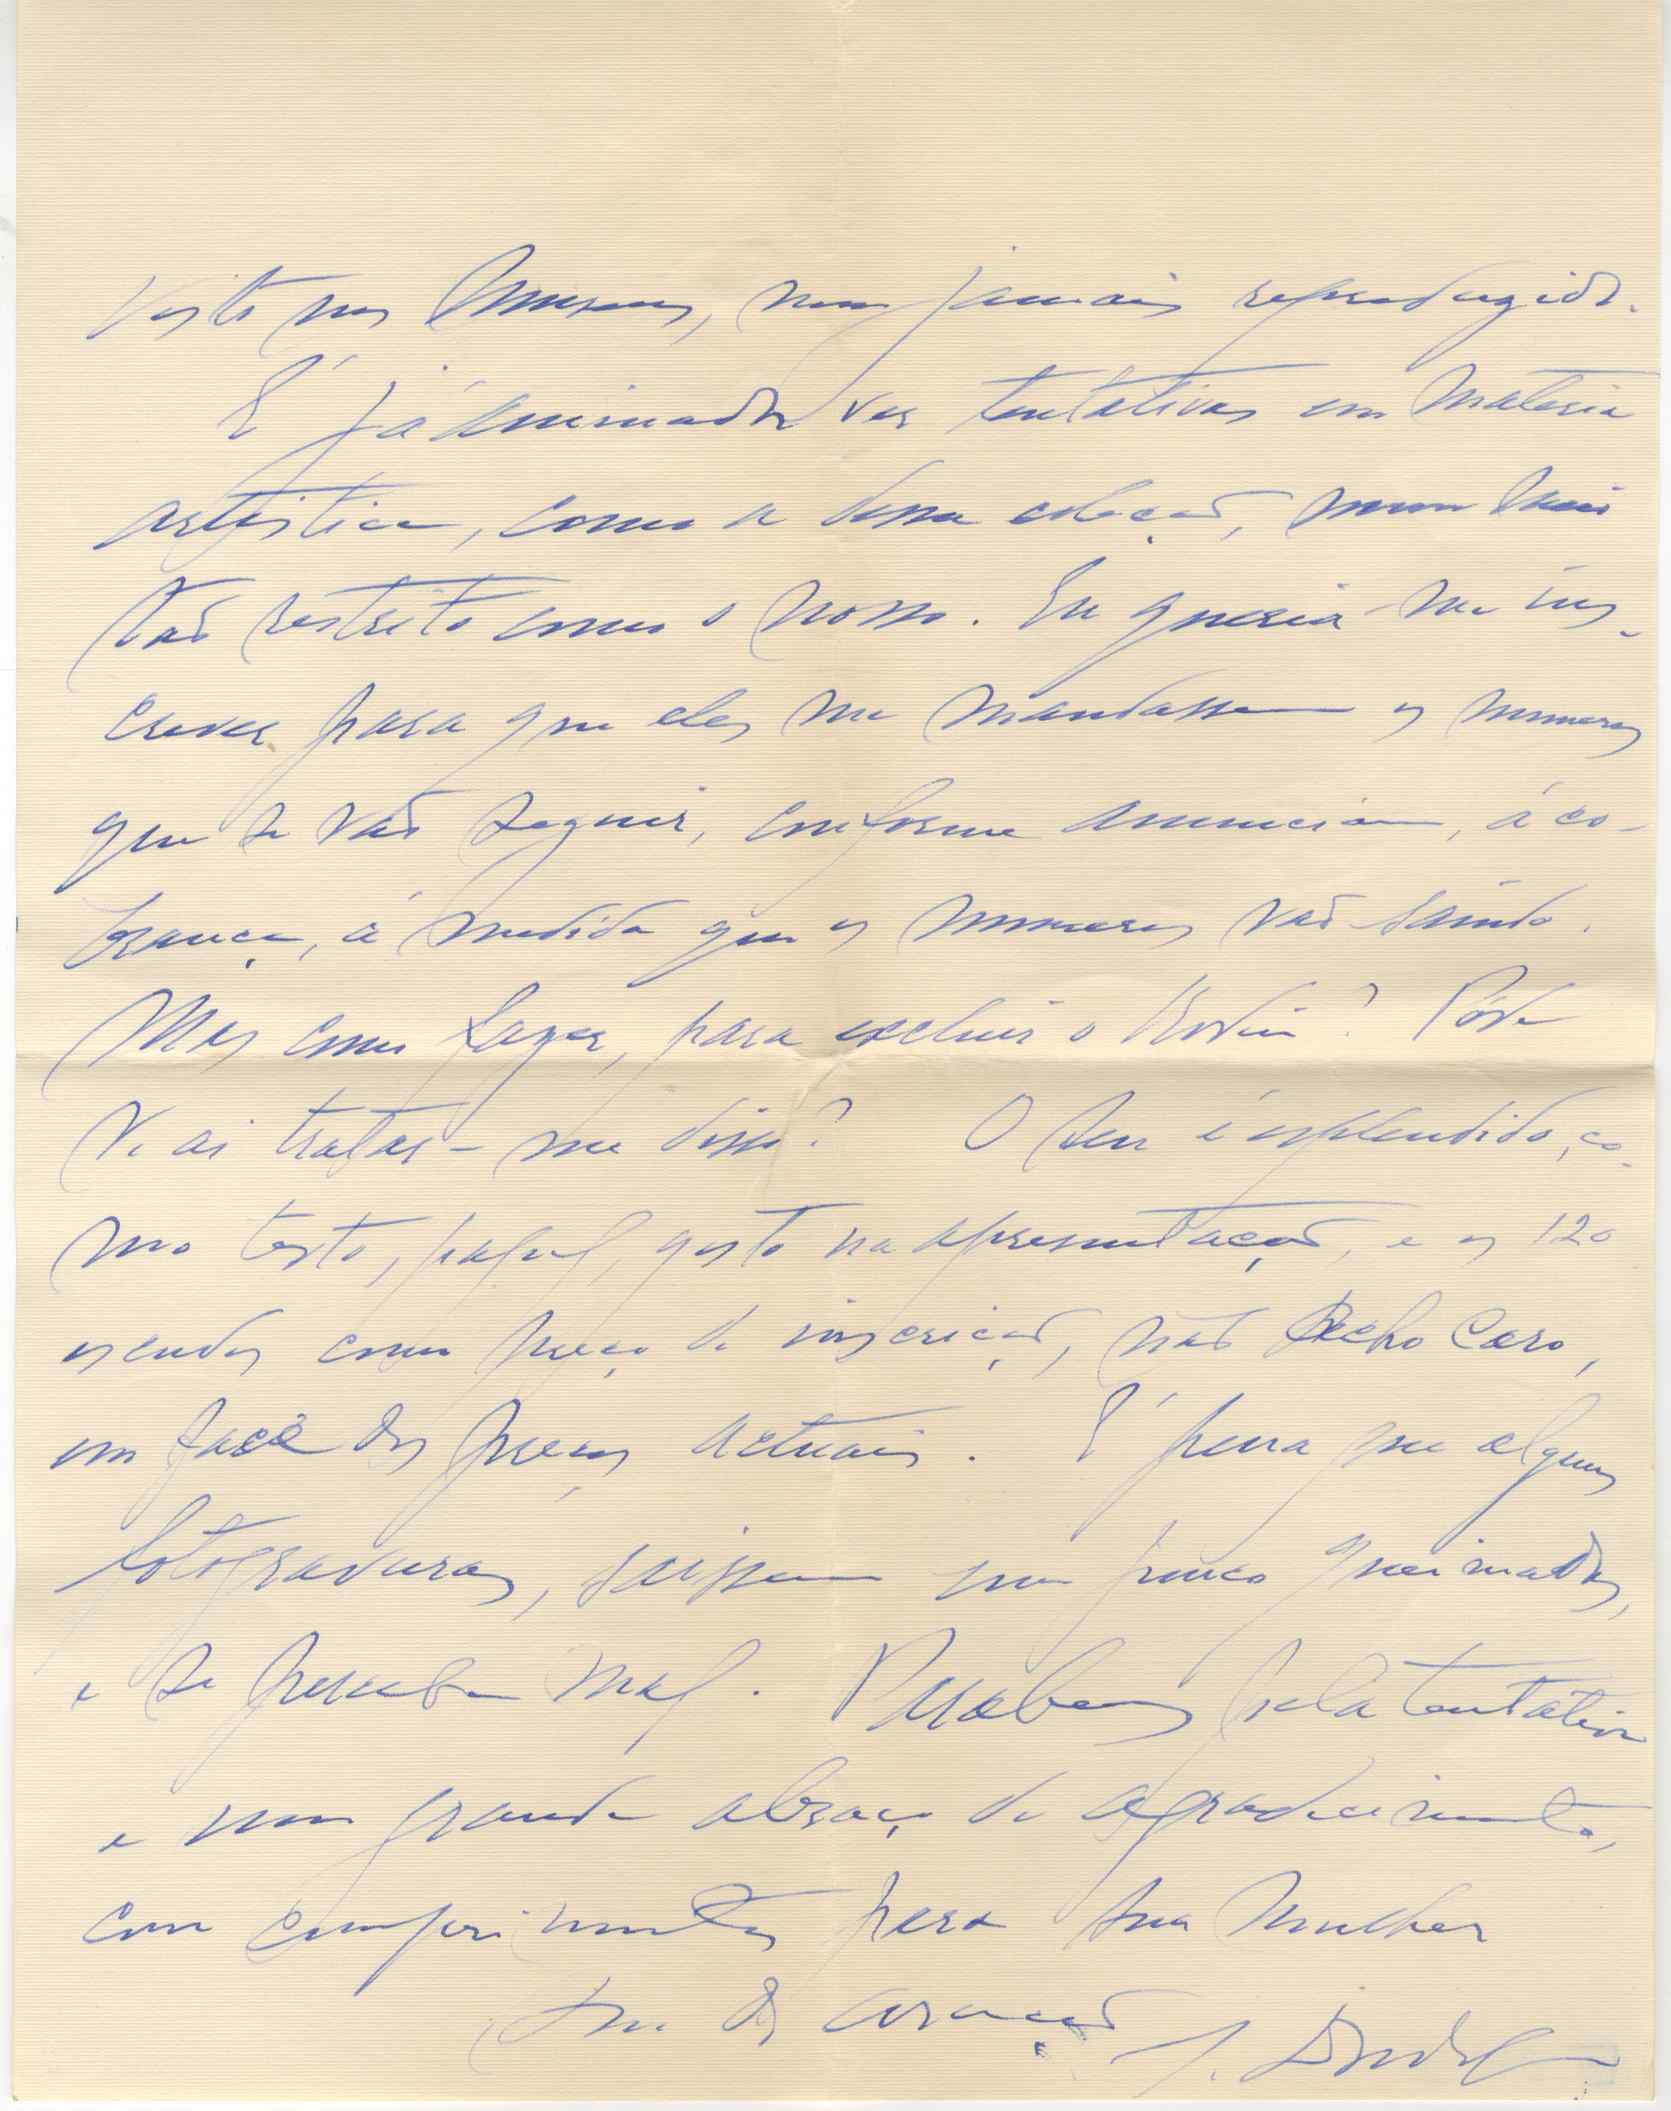 visto nos Museus, nem jamais reproduzido.
É já animador ver tentativas em materia
artistica, como a dessa coleção, num meio
tão restrito como o nosso. Eu queria me ins-
crever para que eles me mandassem os numeros
que se vão seguir, conforme anunciam, á co-
brança, á medida que os numeros vão saindo.
Mas como fazer, para excluir o Rodin? Póde
V. ai tratar-me disso? O seu é esplendido, co-
mo texto, papel, gosto na apresentação, e os 120
escudos como preço de inscrição, não acho caro,
em face dos preços actuais. É pena que algumas
fotogravuras, saissem um pouco queimadas,
e se perceba mal. Parabens pela tentativa
e um grande abraço de agradecimento,
com comprimentos para sua mulher
Seu do coração